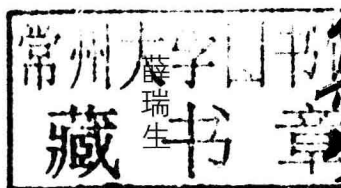 常州大学山书
藏书章
薛瑞生